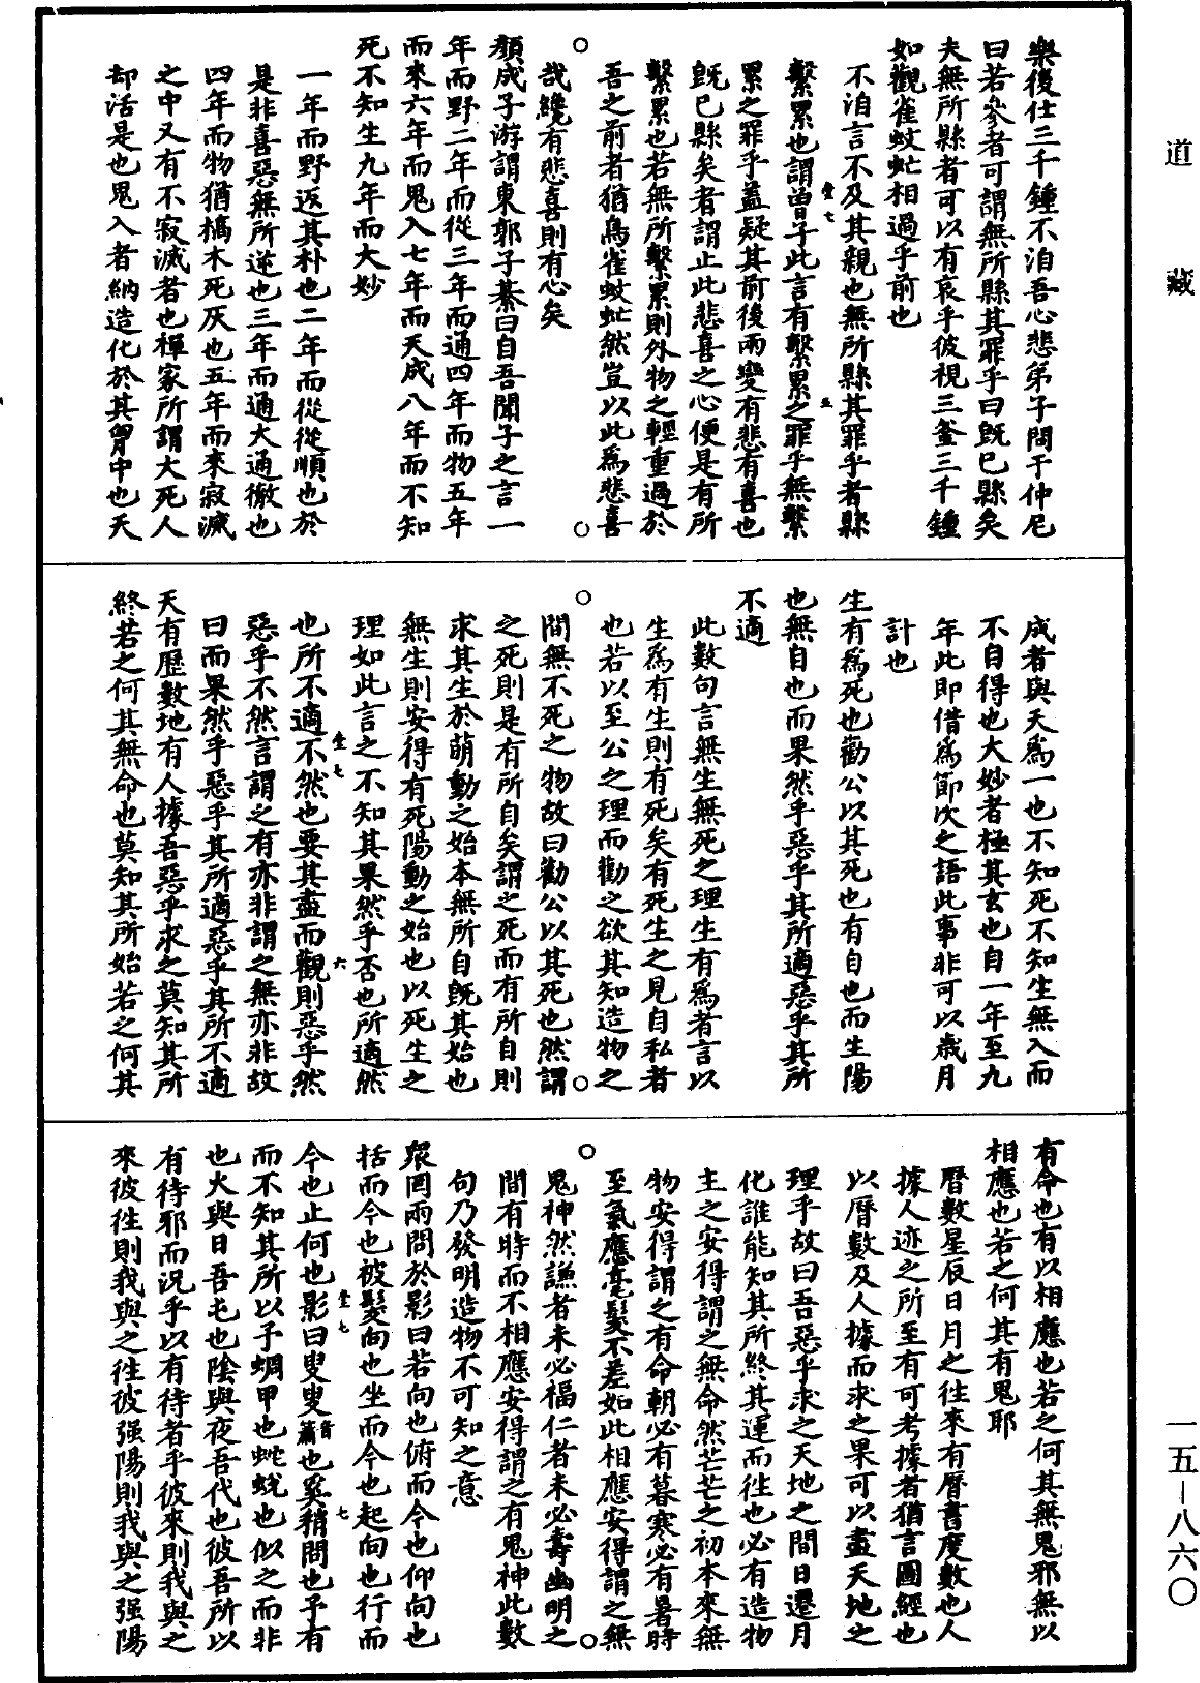 樂後仕三千鍾不洎吾心悲弟子問于仲尼
曰若參者可謂無所縣其罪乎曰既已縣矣
夫無所縣者可以有哀乎彼視三釜三千鍾
如觀雀蚊虻相過乎前也
不洎言不及其親也無所縣其罪乎者縣
繫累也謂曾子此言有繫累之罪乎無繫
累之罪乎蓋疑其前後兩變有悲有喜也
既已縣矣者謂止此悲喜之心便是有所
繫累也若無所繫累則外物之輕重過於
吾之前者猶鳥雀蚊虻然豈以此為悲喜
哉纔有悲喜則有心矣
顏成子游謂東郭子綦曰自吾聞子之言一
年而野二年而從三年而通四年而物五年
而來六年而鬼入七年而天成八年而不知
死不知生九年而大妙
一年而野返其朴也二年而從從順也於
是非喜惡無所逆也三年而通大通徹也
四年而物猶槁木死灰也五年而來寂滅
之中又有不寂滅者也禪家所謂大死人
却活是也鬼入者納造化於其胷中也天
成者與天為一也不知死不知生無入而
不自得也大妙者極其玄也自一年至九
年此即借為節次之語此事非可以歲月
計也
生有為死也勸公以其死也有自也而生陽
也無自也而果然乎惡乎其所適惡乎其所
不適
此數句言無生無死之理生有為者言以
生為有生則有死矣有死生之見自私者
也若以至公之理而勸之欲其知造物之
間無不死之物故曰勸公以其死也然謂
之死則是有所自矣謂之死而有所自則
求其生於萌動之始本無所自既其始也
無生則安得有死陽動之始也以死生之
理如此言之不知其果然乎否也所適然
也所不適不然也要其盡而觀則惡乎然
惡乎不然言謂之有亦非謂之無亦非故
曰而果然乎惡乎其所適惡乎其所不適
天有歷數地有人據吾惡乎求之莫知其所
終若之何其無命也莫知其所始若之何其
有命也有以相應也若之何其無鬼邪無以
相應也若之何其有鬼耶
曆數星辰日月之往來有曆書度數也人
據人迹之所至有可考據者猶言圖經也
以曆數及人據而求之果可以盡天地之
理乎故曰吾惡乎求之天地之間日遷月
化誰能知其所終其運而往也必有造物
主之安得謂之無命然芒芒之初本來無
物安得謂之有命朝必有暮寒必有暑時
至氣應毫髮不差如此相應安得謂之無
鬼神然謙者未必福仁者未必壽幽明之
間有時而不相應安得謂之有鬼神此數
句乃發明造物不可知之意
眾罔兩問於影曰若向也俯而今也仰向也
括而今也被髮向也坐而今也起向也行而
今也止何也影曰叟叟音蕭也奚稍問也予有
而不知其所以予蜩甲也蛇蛻也似之而非
也火與日吾屯也陰與夜吾代也彼吾所以
有待邪而況乎以有待者乎彼來則我與之
來彼往則我與之往彼强陽則我與之强陽
道藏
一五—八六〇